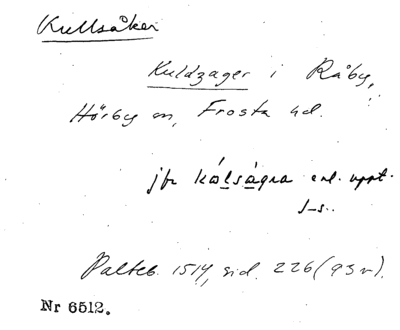 Kullsåker
Kuldzager i Råby,
Hörby sn, Frosta hd.
jfr kålságra enl. uppt.
J-s.
Palteb. 1514, sid. 226 (93v).
Nr 6512.